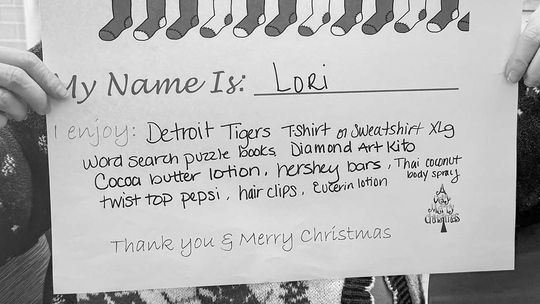 My Name Is: Lori
I enjoy: Detroit Tigers T-Shirt or Sweatshirt XLg
word search puzzle books, Diamond Art Kits
Cocoa butter lotion, hershey bars, Thai coconut body spray,
twist top pepsi, hair clips, Eucerin lotion
Thank you & Merry Christmas
Very
Merry
Christmas